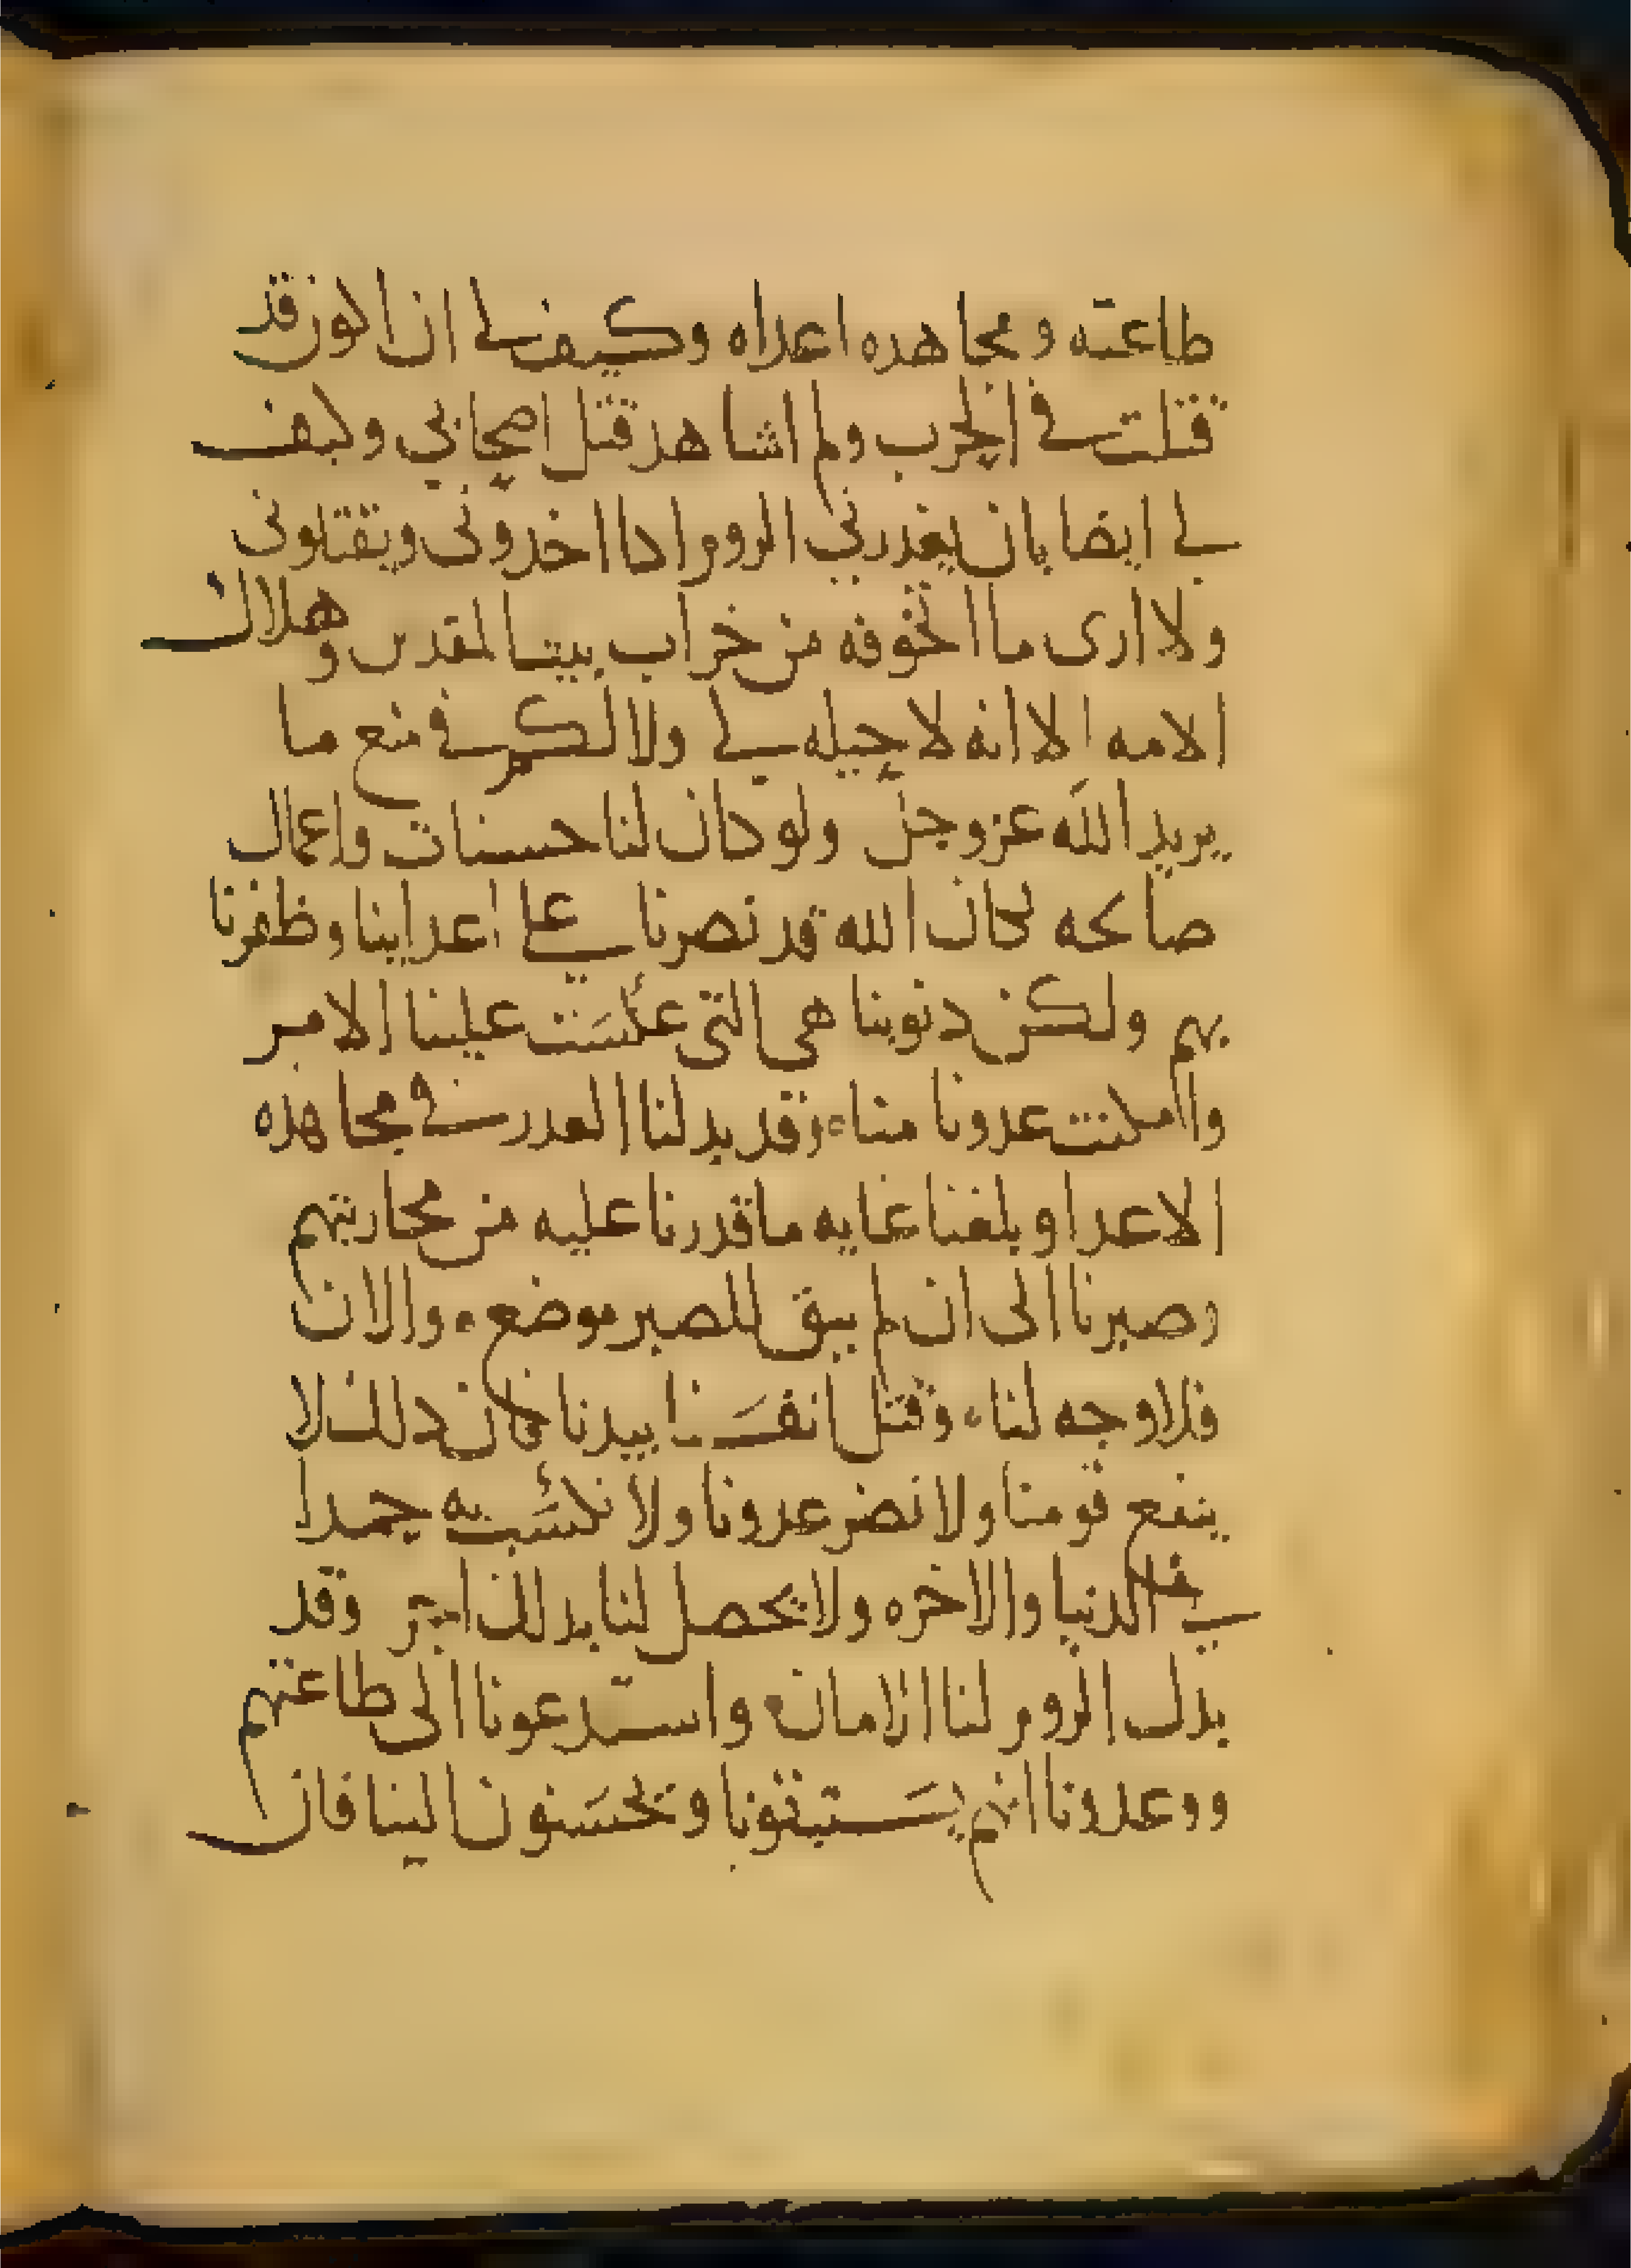 طاعته ومجاهده اعداه وكيف لي ان اكون قد
قتلت في الحرب ولم اشاهد قتل اصحابي وكيف
لي ايضا بان يغدر بي الروم ادا اخدوني ويقتلوني
ولا ارى ما اتخوفه من خراب بيت المقدس وهلاك
الامه الا انه لا حيله لي ولا لكم في منع ما
يريد الله عز وجل ولو كان لنا حسنات واعمال
صالحه لكان الله قد نصرنا على اعداينا وظفرنا
بهم ولكن دنوبنا هي التي عكست علينا الامر
وامكنت عدونا منا وقد بدلنا العدر في مجاهده
الاعدا وبلغنا غايه ما قدرنا عليه من محاربتهم
وصبرنا الى ان لم يبق للصبر موضع والان
فلا وجه لنا وقتل انفسنا بيدنا فان دلك لا
ينفع قومنا ولا نضر عدونا ولا نكسب به حمدا
في الدنيا والاخره ولا يحصل لنا بدلك اجر وقد
بدل الروم لنا الامان واستدعونا الى طاعتهم
ووعدونا انهم يستبقونا ويحسنون الينا فان